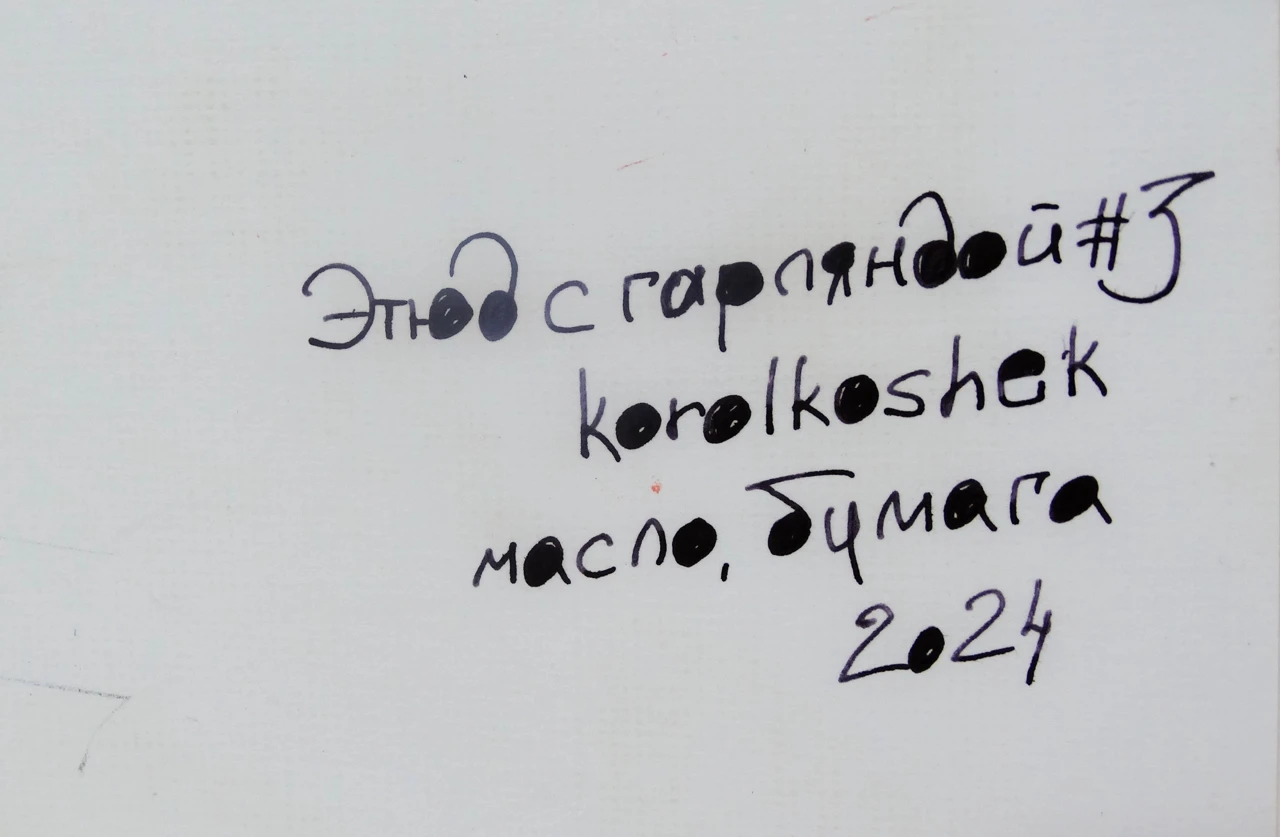 Этюд с гарляндой #3
korolkoshek
масло, бумага
2024